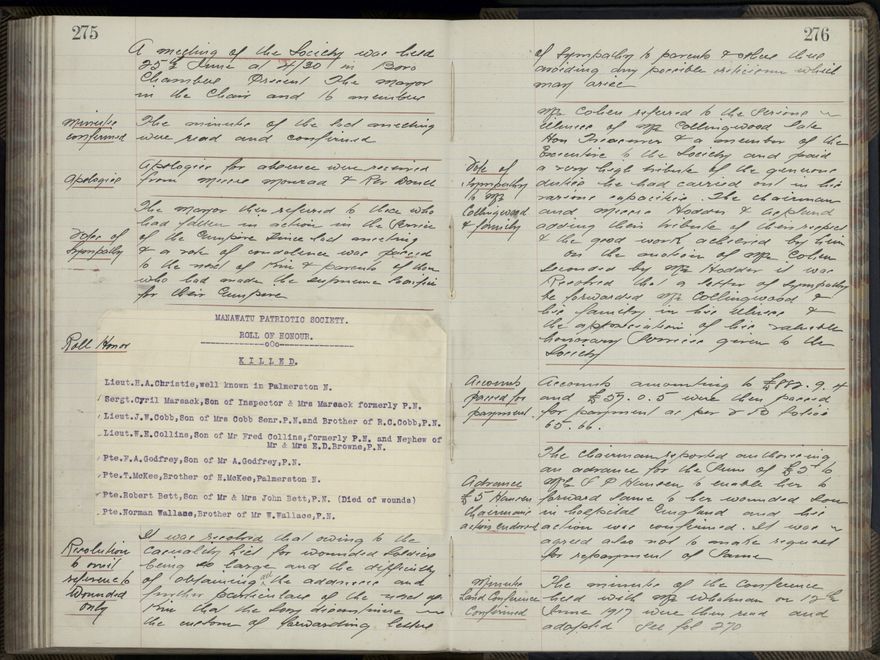 275
A meeting of the Society was held
25th June at 4/30 in Boro
Chambers Present The Mayor
in the Chair and 16 members
Minutes
confirmed
The minutes of the last meeting
were read and confirmed
Apologies
Apologies for absence were received
from Messrs Monrad & Rev Doull
Vote of
Sympathy
The Mayor then referred to those who
had fallen in action in the Service
of the Empire since last meeting
& a vote of condolence was passed
to the next of Kin & parents of those
who had made the supreme sacrifice
for their Empire
Roll Honor
MANAWATU PATRIOTIC SOCIETY.
ROLL OF HONOUR.
---------------oOo---------------
KILLED.
Lieut.H.A.Christie,well known in Palmerston N.
Sergt.Cyril Marsack,Son of Inspector & Mrs Marsack formerly P.N.
Lieut.J.W.Cobb,Son of Mrs Cobb Senr.P.N.and Brother of R.C.Cobb,P.N.
Lieut.W.E.Collins,Son of Mr Fred Collins,formerly P.N. and Nephew of
Mr & Mrs E.D.Browne,P.N.
Pte.F.A.Godfrey,Son of Mr A.Godfrey,P.N.
Pte.T.McKee,Brother of H.McKee,Palmerston N.
Pte.Robert Bett,Son of Mr & Mrs John Bett,P.N. (Died of wounds)
Pte.Norman Wallace,Brother of Mr W.Wallace,P.N.
Resolution
to omit
reference to
Wounded
only
It was resolved that owing to the
casualty list for wounded soldiers
being so large and the difficulty
of obtaining all the addresses and
further particulars of the next of
Kin that the Socy discontinue
the custom of forwarding letters
276
of Sympathy to parents & others thus
avoiding any possible criticism which
may arise
Vote of
Sympathy
to Mr
Collingwood
& family
Mr Cohen referred to the serious
illness of Mr Collingwood late
Hon Treasurer & a member of the
Executive to the Society and paid
a very high tribute of the generous
duties he had carried out in his
various capacities. The chairman
and Messrs Hodder &
adding their tribute of their respect
& the good work achieved by him
On the motion of Mr Cohen
seconded by Mr Hodder it was
Resolved that a letter of Sympathy
be forwarded Mr Collingwood &
his family in his illness &
the appreciation of his valuable
honorary Services given to the
Society
Accounts
passed for
payment
Accounts amounting to £882. 9. 4
and £59. 0. 5 were then passed
for payment as per folios
65. 66.
Advance
£5 Hansen
Chairmans
action endorsed
The Chairman reported authorising
an advance for the sum of £5 to
Mrs S P Hansen to enable her to
forward same to her wounded son
in hospital England and his
action was confirmed. It was
agreed also not to make request
for repayment of Same
Minutes
Land Conference
Confirmed
The minutes of the Conference
held with Mr Whatman on 12th
June 1917 were then read and
adopted See fol 270